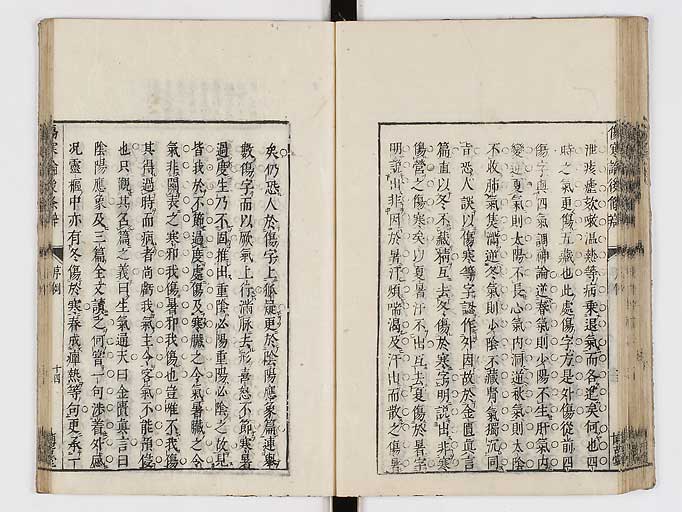 泄痎瘧欬嗽温熱等病乗退氣而各進矣何也四
時之氣更傷五臟也此處傷字方是外傷從前四
傷字與四氣調神論逆春氣則少陽不生肝氣内
變逆夏氣則太陽不長心氣内洞逆秋氣則太陰
不收肺氣焦滿逆冬氣則少陰不藏腎氣獨沉同
旨恐人誤以傷寒等字認作外因故於金匱真言
篇直以冬不藏精五去冬傷於寒謂明説出非寒
傷營之傷寒矣以夏暑汗不出五去夏傷於暑字
明説出非因於暑汗煩喘渴及汗出而散之傷暑
矣仍恐人於傷字上狐疑更於陰陽應象篇連舉
數傷字而以厥氣上行滿脉去形喜怒不節寒暑
過度生乃不固推出重陰必陽重陽必陰之故見
皆我於不節過度處傷及寒臟之令氣暑臟之令
氣非關表之寒邪我傷暑邪我傷也豈唯不我傷
其得過時而病者尚藉我氣主令客氣不能預侵
也只觀其名篇之義曰生氣通天曰金匱真言曰
陰陽應象及三篇全文讀之何嘗一句渉着外感
况靈樞中亦有冬傷於寒春成癉熱等句更之一
傷寒論後條辨
序例
十四